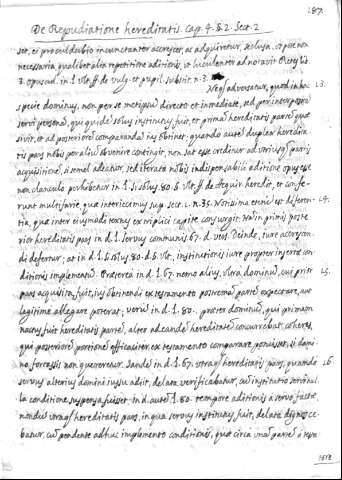 187.
De Repudiatione hereditatis. Cap. 4. §. 2. Sect. 2
set, et procul dubio incunctanter accrescet, ac adquiretur, seclusa, ut pote non
necessaria, qualibet alia repetitione aditionis, ut luculenter adnotavit
3. opuscul. in l. Vlt. ff. de vulg. et pupil. substit. n. 3.
Neq; adversatur, quod in hac 13.
specie dominus, non per se met ipsum directo et inmediate, sed per interpositam
servi personam, qui quidem solus institutus fuit, et primam hereditatis partem quae
sivit, et ad posteriorem comparandam ius obtinet: quando autem duplex heredita
tis pars nobis per alium obvenire contingit, non sat esse creditur ad utriusq; partis
acquisitionem, si semel adeatur, sed iterata nobis indispensabiliter aditione opus esse
non clanculo perhibetur in l. si solus. 80. §. Vlt. ff. de acquir. heredit., et confe-
runt multifarie, quae interiecimus sup. sect. 1. n. 35. Notissima etenim est differen- 14.
tia, quae inter eiusmodi textus ex triplici capite consurgit. Nam in primis poste
rior hereditatis pars in d. l. Servus communis 67. d. vers. Deinde, iure accrescen-
di defertur; at in d. l. si solus. 80. d. §. Vlt., institutionis iure propter insertae con-
ditionis implementum. Praeterea in d. l. 67. nemo alius, vltra dominum, cui prior 15.
pars acquisita fuit, ius obtinendi ex testamento postremam partem expectare, aut
legitime allegare poterat; verum in d. l. 80. praeter dominum, qui primam
nactus fuit hereditatis partem, alter ad eandem hereditatem concurrebat coheres,
qui posteriorem portionem efficaciter ex testamento comparare potuisset, si domi-
no forressis non quaereretur. Tandem in d. l. 67. utraq; hereditatis pars, quando 16
servus alterius domini iussu adiit, delata verificabatur, cum institutio servi nul-
la conditione suspensa fuisset. in d. autem l. 80. tempore aditionis a servo factae
nondum utraq; hereditatis pars, in qua servus institutus fuit, delata dignosce-
batur, cum pendente adhuc implemento conditionis, quae circa unam partem